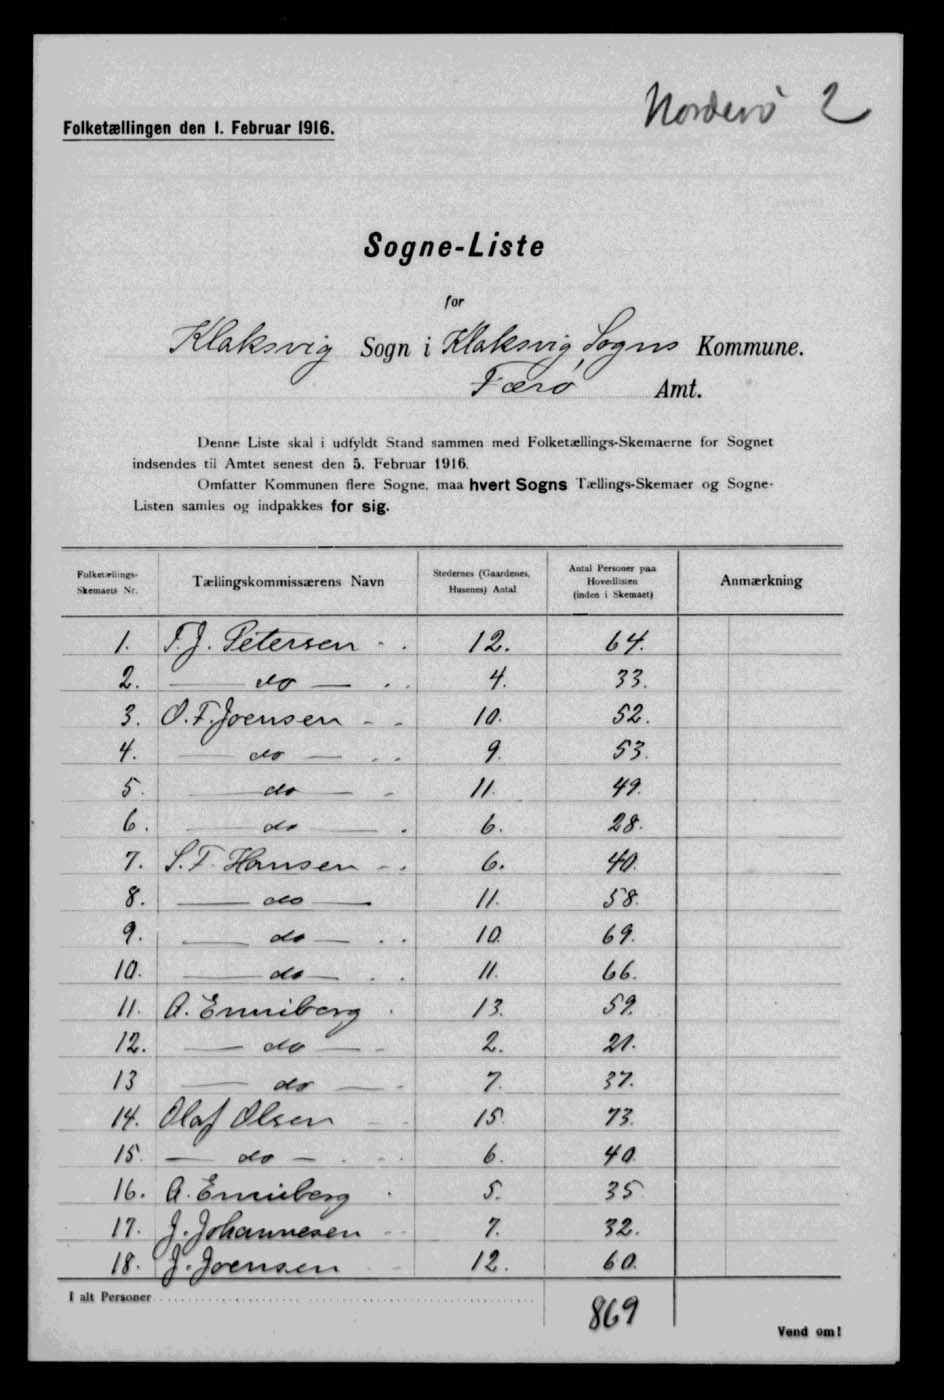 Norderö 2
Folketællingen den 1. Februar 1916.
Sogne-Liste
for
Klaksvig Sogn i Klaksvig Sogns Kommune.
Færø Amt.
Denne Liste skal i udfyldt Stand sammen med Folketællings-Skemaerne for Sognet
indsendes til Amtet senest den 5. Februar 1916.
Omfatter Kommunen flere Sogne, maa hvert Sogns Tællings-Skemaer og Sogne-
Listen samles og indpakkes for sig.
Folketællings-Skemaets Nr. Tællingskommissærens Navn Stedernes (Gaardenes, Husenes) Antal Antal Personer paa Hovedlisten (inden i Skemaet) Anmærkning
1. T. J. Petersen - . 12. 64.
2. — do — . . 4. 33.
3. O. F. Joensen - - 10. 52.
4. — do — . . 9. 53.
5. — do — - 11. 49.
6. — do — . 6. 28.
7. S. F. Hansen - . 6. 40.
8. — do — 11. 58.
9. — do — . . 10. 69.
10. — do — . 11. 66.
11. A. Enniberg . 13. 59.
12. — do — - 2. 21.
13 — do — - 7. 37.
14. Olaf Olsen - - 15. 73.
15. — do — . - 6. 40.
16. A. Enniberg . 5. 35
17. J. Johannesen - 7. 32.
18. J. Joensen - 12. 60.
I alt Personer 869
Vend om!